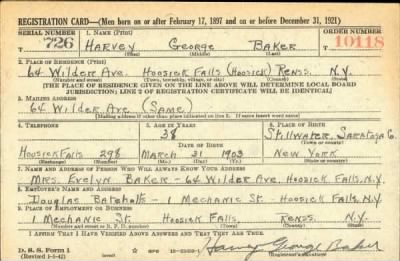 REGISTRATION CARD—(Men born on or after February 17, 1897 and on or before December 31, 1921)
SERIAL NUMBER 1. NAME (Print) ORDER NUMBER
T 726 HARVEY George BAKER 10118
(First) (Middle) (Last)
2. PLACE OF RESIDENCE (Print)
64 Wilder Ave. Hoosick Falls (Hoosick) Renss. N.Y.
(Number and street) (Town, township, village, or city) (County) (State)
[THE PLACE OF RESIDENCE GIVEN ON THE LINE ABOVE WILL DETERMINE LOCAL BOARD
JURISDICTION; LINE 2 OF REGISTRATION CERTIFICATE WILL BE IDENTICAL]
3. MAILING ADDRESS
64 Wilder Ave (Same)
[Mailing address if other than place indicated on line 2. If same insert word same]
4. TELEPHONE 5. AGE IN YEARS 6. PLACE OF BIRTH
38 Stillwater, Saratoga Co.
DATE OF BIRTH (Town or county)
Hoosick Falls 298 March 31 1903 New York
(Exchange) (Number) (Mo.) (Day) (Yr.) (State or country)
7. NAME AND ADDRESS OF PERSON WHO WILL ALWAYS KNOW YOUR ADDRESS
Mrs. Evelyn Baker - 64 Wilder Ave. Hoosick Falls, N.Y.
8. EMPLOYER'S NAME AND ADDRESS
Douglas - 1 Mechanic St - Hoosick Falls, N.Y.
9. PLACE OF EMPLOYMENT OR BUSINESS
1 Mechanic St. Hoosick Falls, Renss. N.Y.
(Number and street or R. F. D. number) (Town) (County) (State)
I AFFIRM THAT I HAVE VERIFIED ABOVE ANSWERS AND THAT THEY ARE TRUE.
D. S. S. Form 1
(Revised 1-1-42) Harvey George Baker